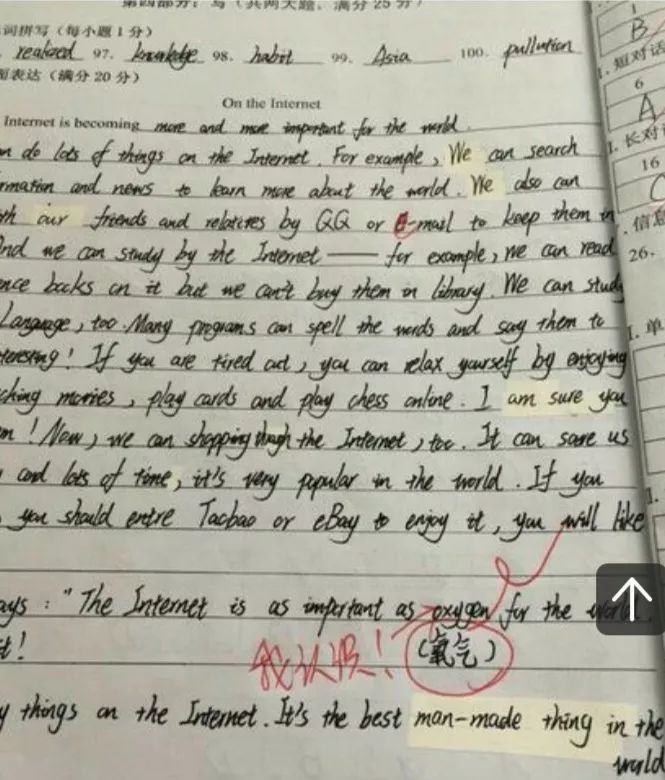 第四部分：写（共两大题，满分 25 分）
词拼写（每小题 1 分）
. realized 97. knowledge 98. habit 99. Asia 100. pullution
面表达（满分 20 分）
On the Internet
Internet is becoming more and more important for the world.
n do lots of things on the Internet. For example, We can search
rmation and news to learn more about the world. We also can
th our friends and relatires by QQ or E-mail to keep them in
And we can study by the Internet —— for example, we can read
ence books on it but we can't buy them in library. We can study
Language, too. Many programs can spell the words and say them to
teresting! If you are tired out, you can relax yourself by enjoying
ching movies, play cards and play chess online. I am sure you
m! Now, we can shopping through the Internet, too. It can save us
and lots of time, it's very popular in the world. If you
, you should entre Taobao or eBay to enjoy it, you will like
ays: "The Internet is as important as oxygen for the world.
it!
(氧气)
我认识！
y things on the Internet. It's the best man-made thing in the
world
1
B
1. 短对话
6
A
1. 长对
16
C
. 信息
26.
1. 单